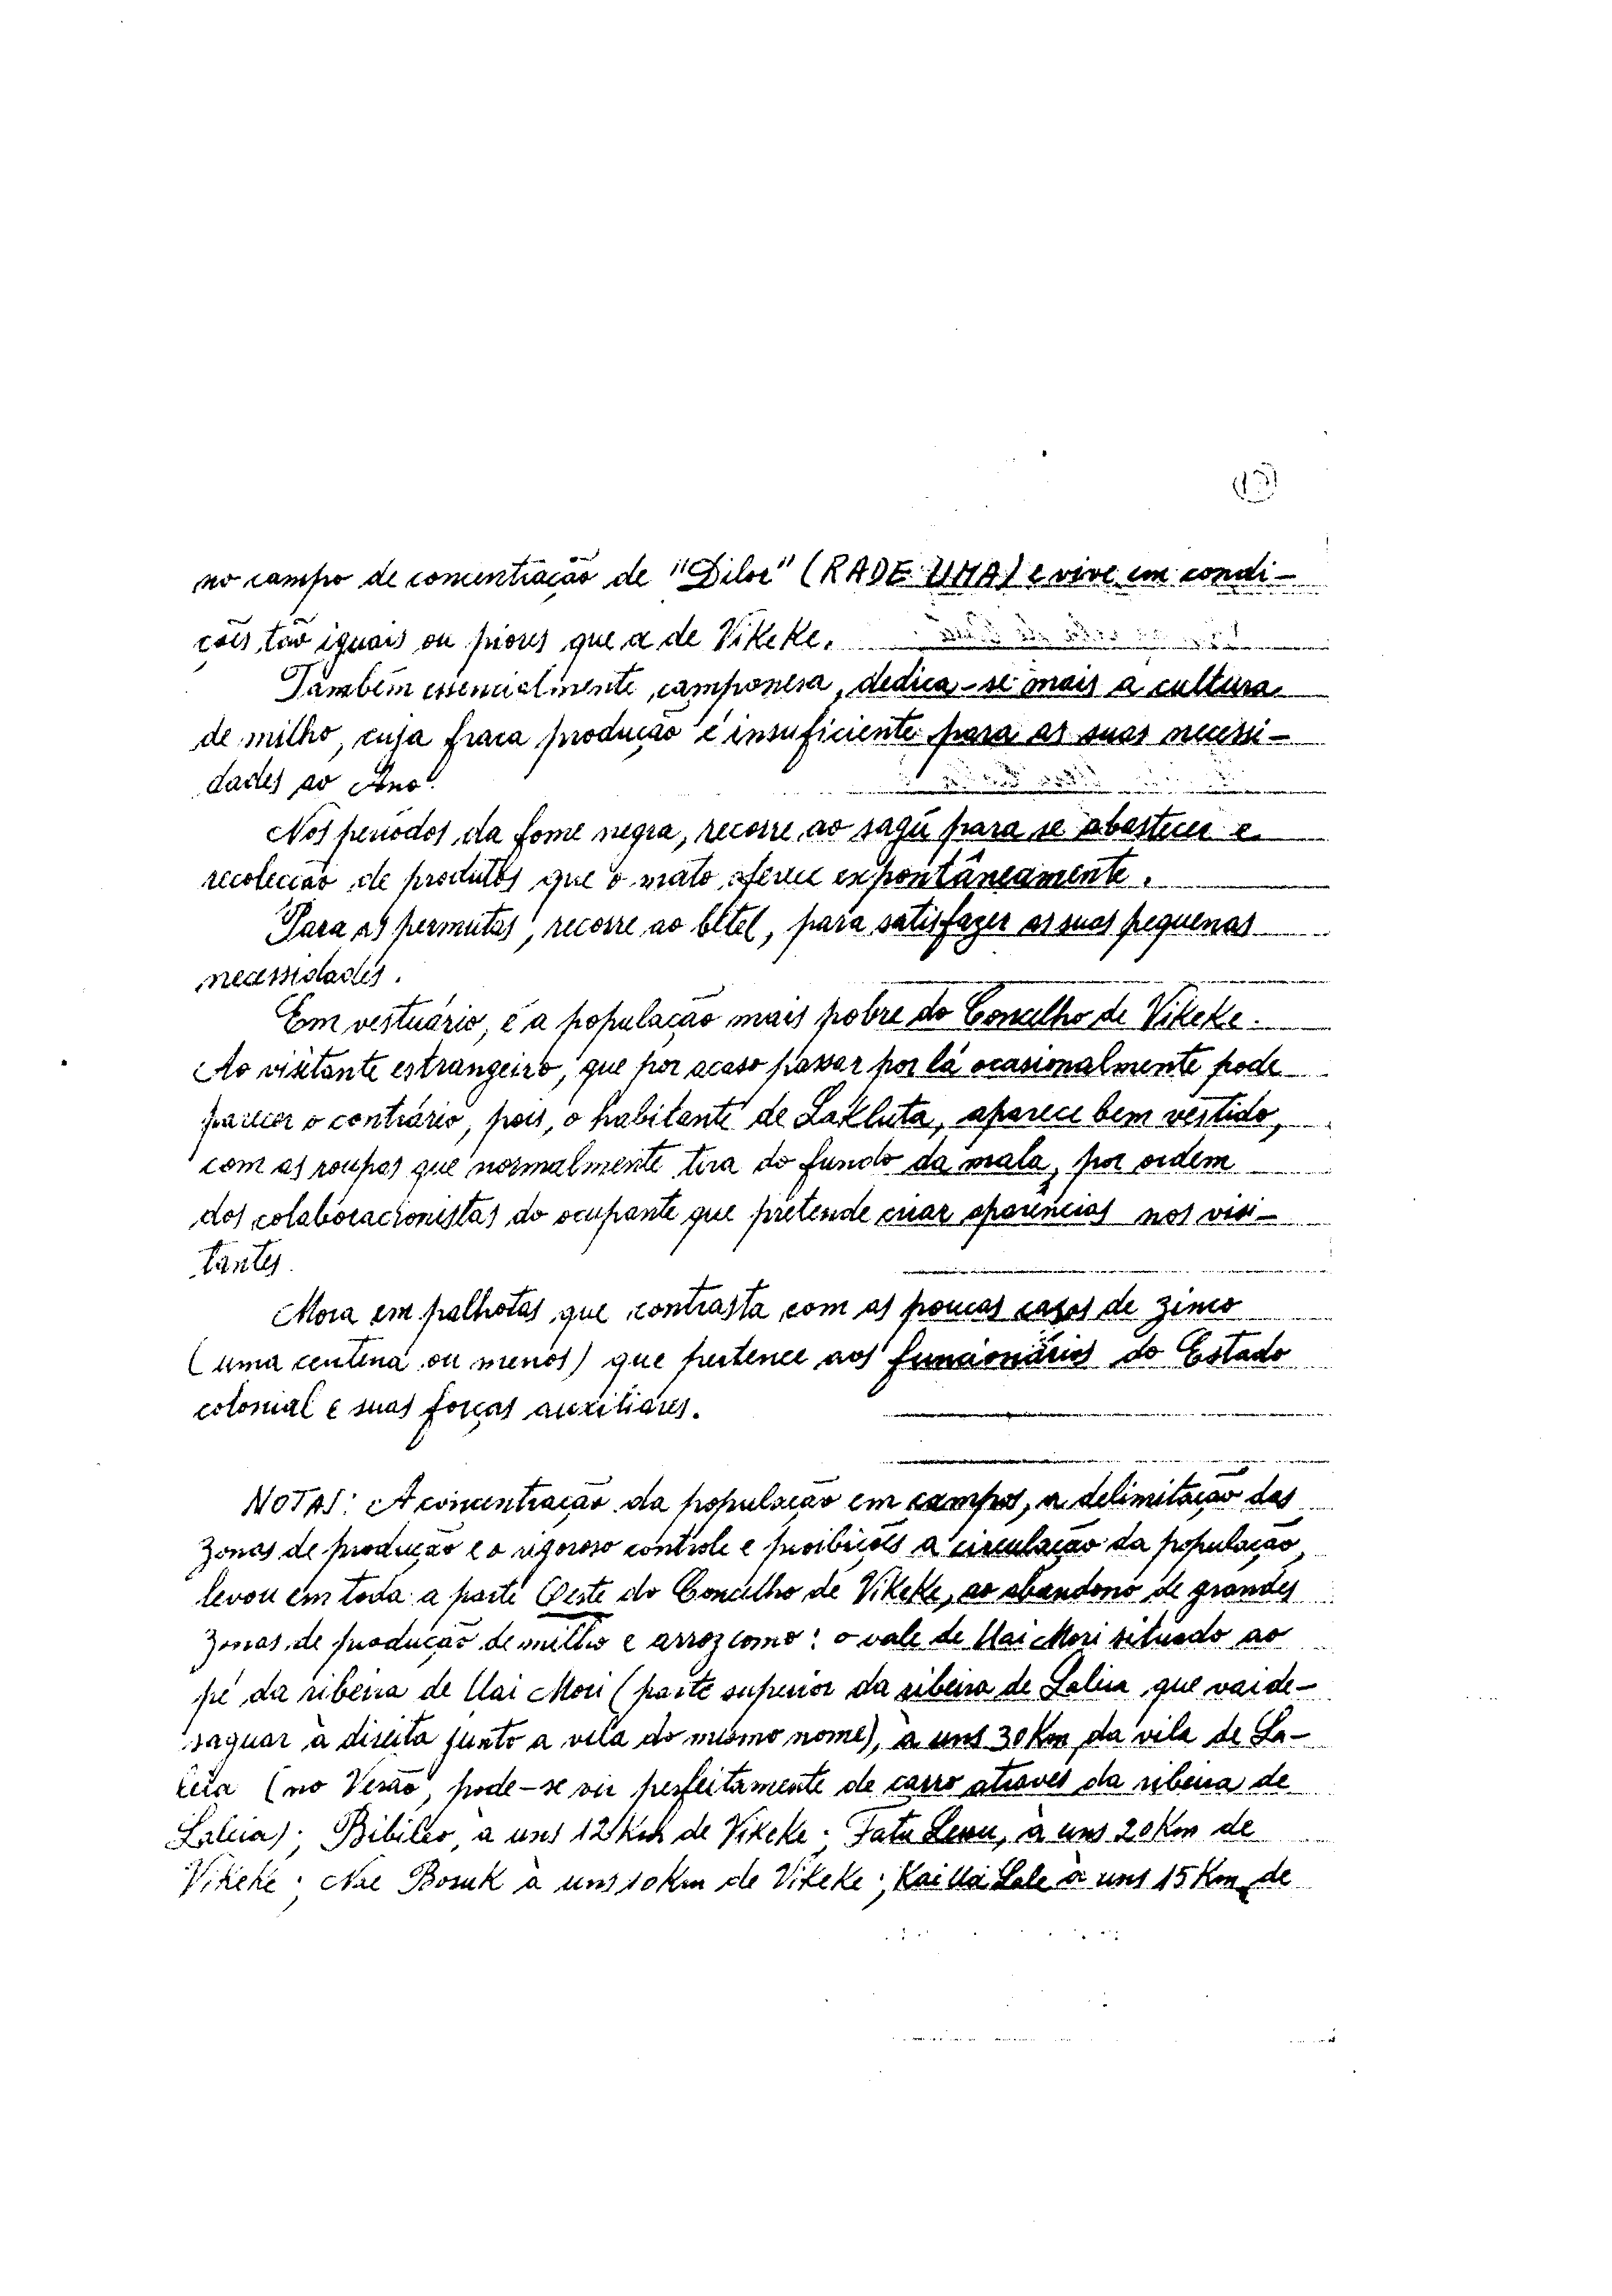 no campo de concentração de "Dilor" (RADE UMA) e vive em condi-
ções tão iguais ou piores que a de Vikeke.
Também essencialmente camponesa, dedica-se mais a cultura
de milho, cuja fraca produção é insuficiente para as suas necessi-
dades ao Ano.
Nos períodos da fome negra, recorre ao sagú para se abastecer e
recolecção de produtos que o mato oferece expontâneamente.
Para as permutas, recorre ao betel, para satisfazer as suas pequenas
necessidades.
Em vestuário, é a população mais pobre do Concelho de Vikeke.
Ao visitante estrangeiro, que por acaso passar por lá ocasionalmente pode
parecer o contrário, pois, o habitante de Lakluta, aparece bem vestido,
com as roupas que normalmente tira do fundo da mala, por ordem
dos colaboracionistas do ocupante que pretende criar aparências nos visi-
tantes.
Mora em palhotas que contrasta com as poucas casas de zinco
(uma centena ou menos) que pertence aos funcionários do Estado
colonial e suas forças auxiliares.
NOTAS: A concentração da população em campos, a delimitação das
zonas de produção e o rigoroso controle e proibições a circulação da população,
levou em toda a parte Oeste do Concelho de Vikeke, ao abandono de grandes
zonas de produção de milho e arroz como: o vale de Uai Mori situado ao
pé da ribeira de Uai Mori (parte superior da ribeira de Laleia que vai de-
saguar à direita junto a vila do mesmo nome), à uns 30 Km da vila de La-
leia (no Verão, pode-se vir perfeitamente de carro através da ribeira de
Laleia); Bibileo, a uns 12 Km de Vikeke; Fatu Leau, à uns 20 Km de
Vikeke; Nae Bosuk à uns 10 Km de Vikeke; Kai Uai Lale à uns 15 Km de